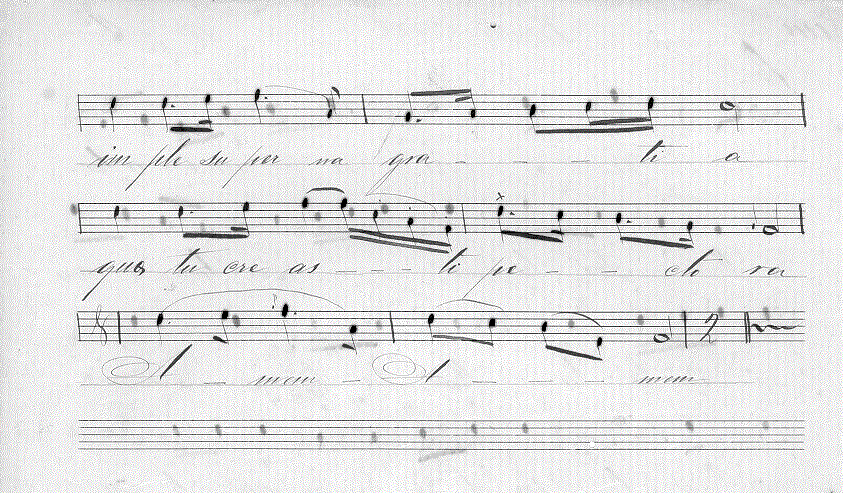 im ple su per na gra - - - - ti a
quæ tu cre as - - - ti pe - - - cto ra
A - men - A - - - men
2